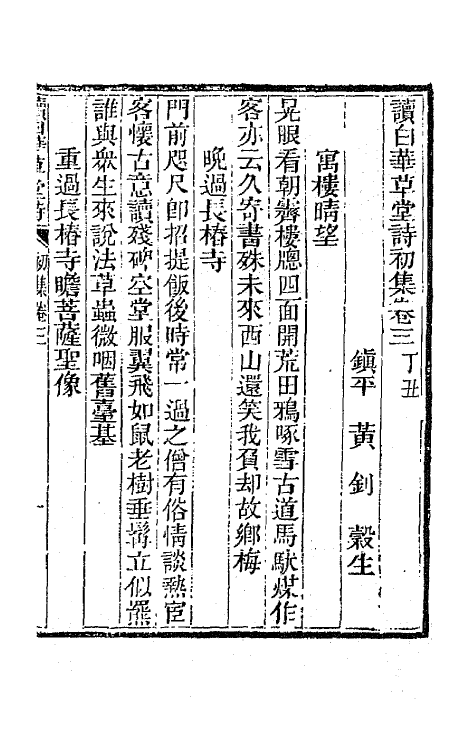 讀白華草堂詩初集卷三 丁丑
鎮平 黃 釗 穀生
寓樓晴望
晃眼看朝霽樓牕四面開荒田鴉啄雪古道馬馱煤作
客亦云久寄書殊未來西山還笑我負却故鄉梅
晚過長椿寺
門前咫尺卽招提飯後時常一過之僧有俗情談熱宦
客懷古意讀殘碑空堂服翼飛如鼠老樹垂髯立似
誰與衆生來說法草蟲微咽舊臺基
重過長椿寺瞻菩薩聖像
讀白華草堂詩 初集卷三 一